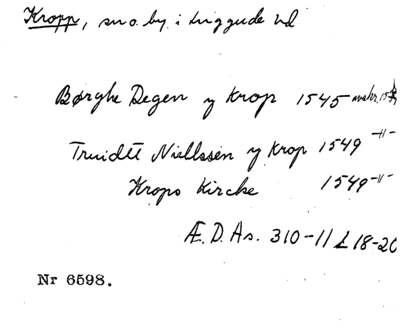 Kropp, sn o. by i Luggude hd
Børghe Degen y Krop 1545
Truidtt Niellssen y Krop 1549 -"-
Krops Kircke 1549 -"-
Æ. D. As. 310-11 L 18-20
Nr 6598.